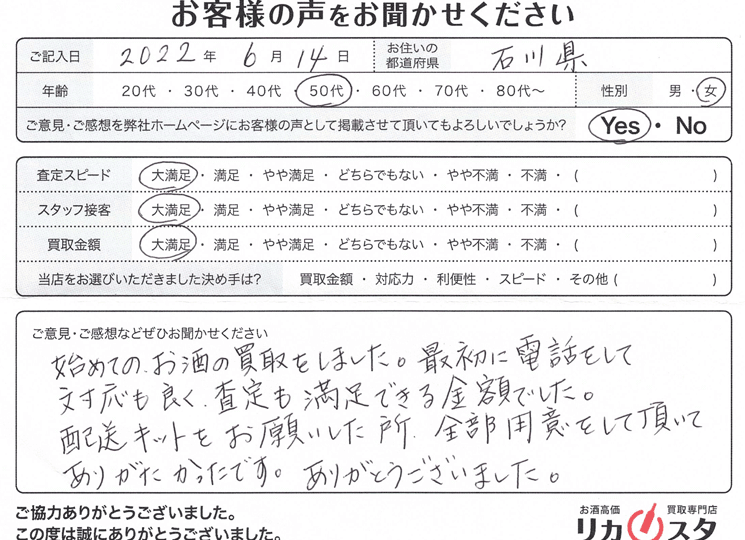 お客様の声をお聞かせください
ご記入日 2022 年 6 月 14 日 お住いの都道府県 石川県
年齢 20代 ・ 30代 ・ 40代 ・ 50代 ・ 60代 ・ 70代 ・ 80代〜 性別 男 ・ 女
ご意見・ご感想を弊社ホームページにお客様の声として掲載させて頂いてもよろしいでしょうか? Yes ・ No
査定スピード 大満足 ・ 満足 ・ やや満足 ・ どちらでもない ・ やや不満 ・ 不満 ・ ( )
スタッフ接客 大満足 ・ 満足 ・ やや満足 ・ どちらでもない ・ やや不満 ・ 不満 ・ ( )
買取金額 大満足 ・ 満足 ・ やや満足 ・ どちらでもない ・ やや不満 ・ 不満 ・ ( )
当店をお選びいただきました決め手は? 買取金額 ・ 対応力 ・ 利便性 ・ スピード ・ その他 ( )
ご意見・ご感想などぜひお聞かせください
始めての、お酒の買取をしました。最初に電話をして
対応も良く、査定も満足できる金額でした。
配送キットをお願いした所、全部用意をして頂いて
ありがたかったです。ありがとうございました。
ご協力ありがとうございました。
この度は誠にありがとうございました。
お酒高価 買取専門店
リカスタ